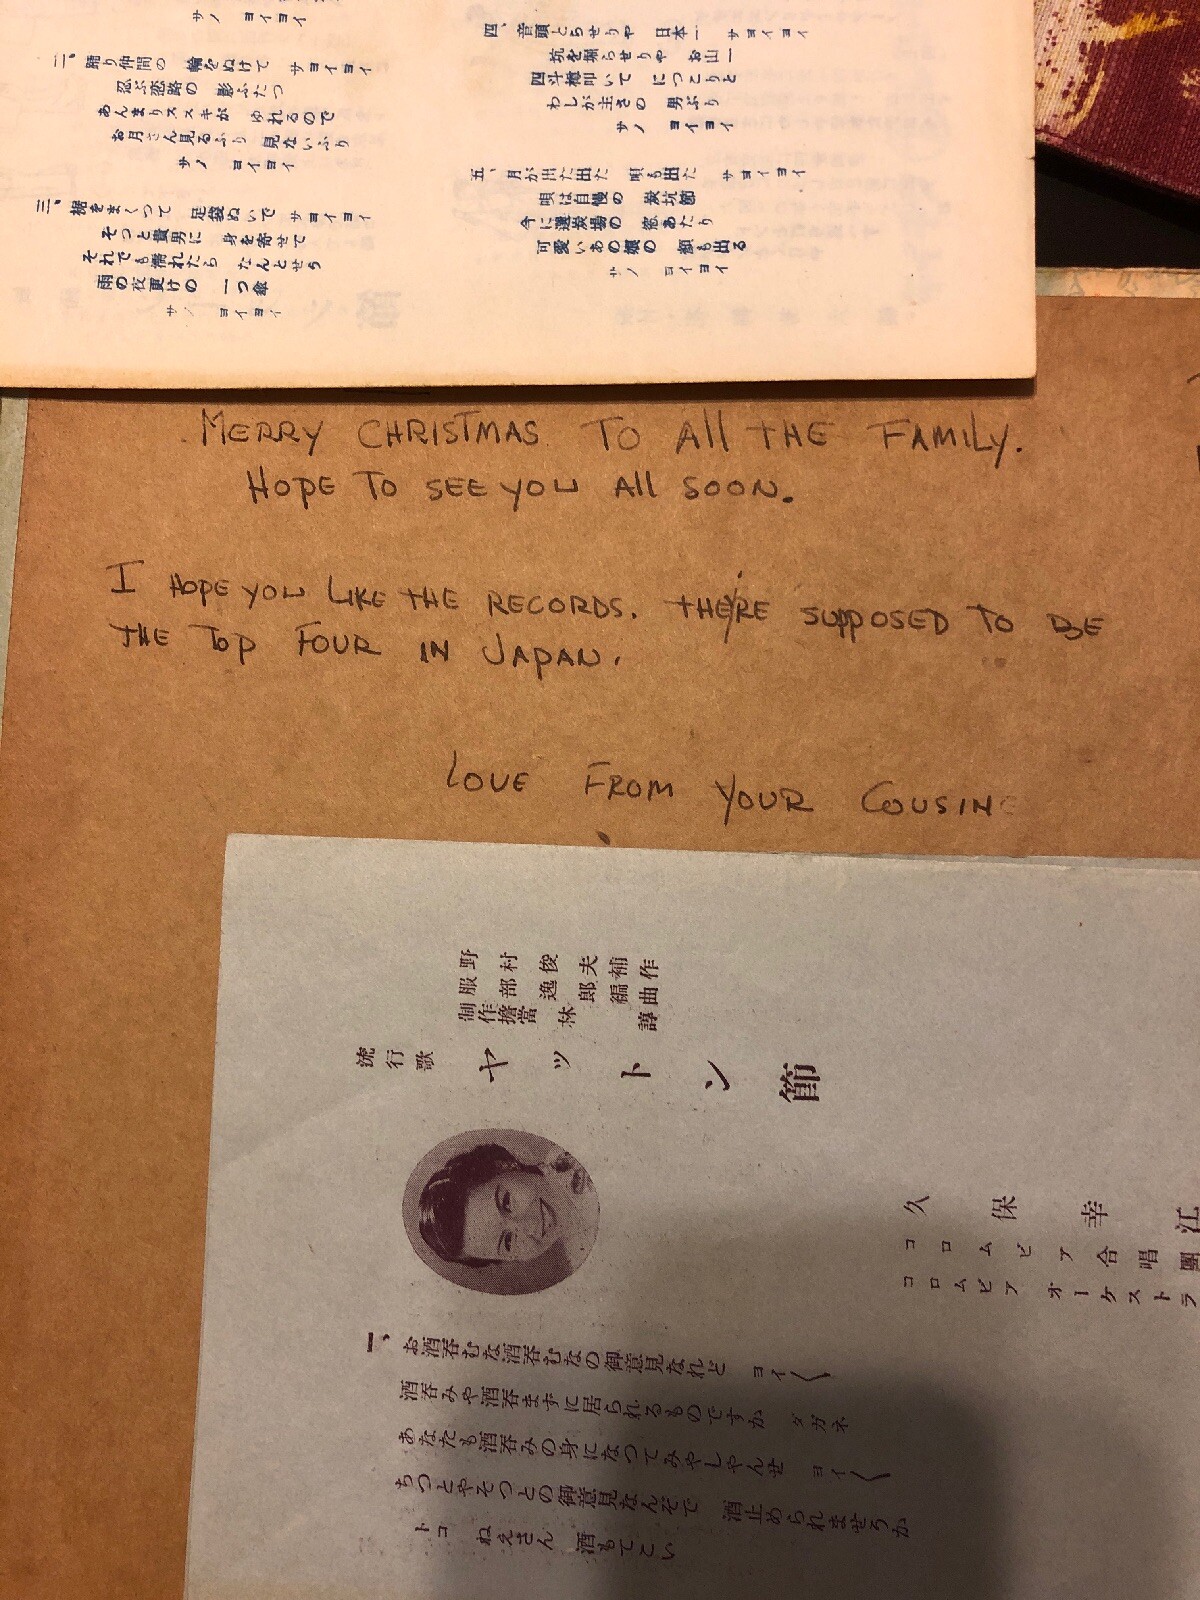 サノ ヨイヨイ
二、踊り仲間の 輪をぬけて サヨイヨイ
忍ぶ恋路の 影ふたつ
あんまりススキが ゆれるので
お月さん見るふり 見ないふり
サノ ヨイヨイ
三、裾をまくつて 足袋ぬいで サヨイヨイ
そつと貴男に 身を寄せて
それでも濡れたら なんとせう
雨の夜更けの 一つ傘
サノ ヨイヨイ
四、音頭とらせりや 日本一 サヨイヨイ
坑を掘らせりや お山一
四斗樽叩いて につこりと
わしが主さの 男ぶり
サノ ヨイヨイ
五、月が出た出た 唄も出た サヨイヨイ
唄は自慢の 炭坑節
今に選炭場の 窓あたり
可愛いあの娘の 顔も出る
サノ ヨイヨイ
MERRY CHRISTMAS TO All THE FAMILY.
HOPE TO SEE YOU All SOON.
I HOPE YOU LIKE THE RECORDS. THEIRE SUPPOSED TO BE
THE TOP FOUR IN JAPAN.
LOVE FROM YOUR COUSIN
野村俊夫補作
服部逸郎編曲
制作擔當 林 諄
流行歌
ヤットン節
久保幸江
コロムビア合唱團
コロムビアオーケストラ
一、お酒呑むな酒呑むなの御意見なれど ヨイ〱
酒呑みや酒呑まずに居られるものですか ダガネ
あなたも酒呑みの身になつてみやしやんせ ヨイ〱
ちつとやそつとの御意見なんぞで 酒止められませうか
トコ ねえさん 酒もてこい